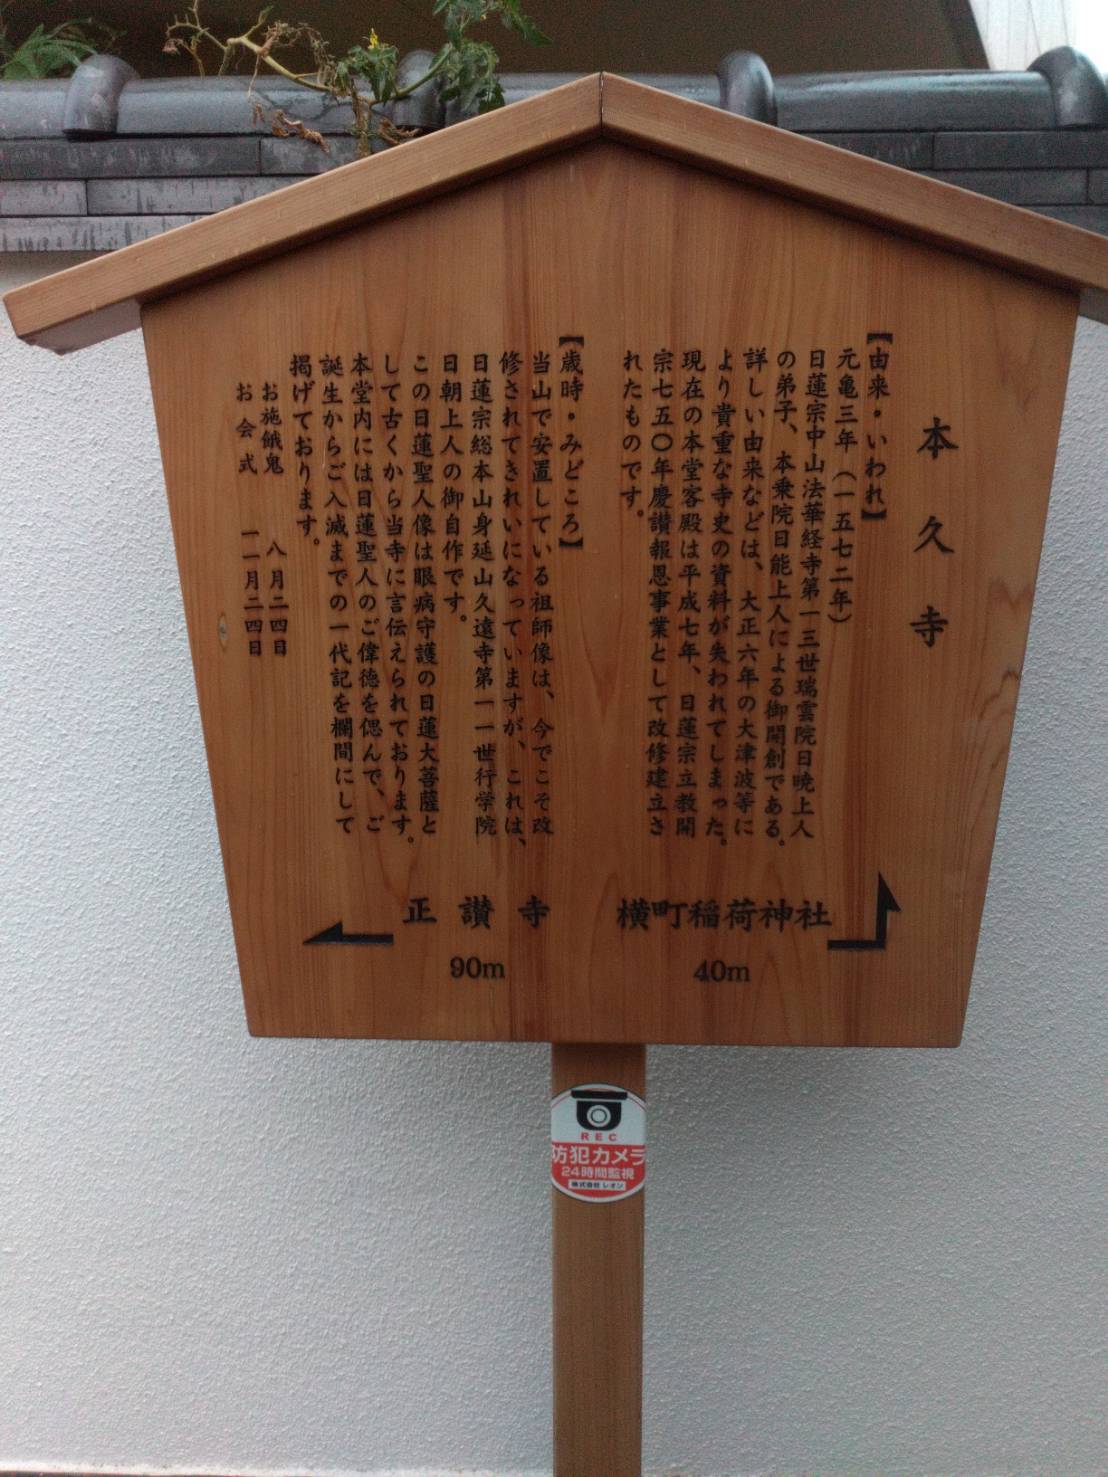 本久寺
【由来・いわれ】
元亀三年（一五七二年）
日蓮宗中山法華経寺第一三世瑞雲院日暁上人
の弟子、本乗院日能上人による御開創である。
詳しい由来などは、大正六年の大津波等に
より貴重な寺史の資料が失われてしまった。
現在の本堂客殿は平成七年、日蓮宗立教開
宗七五〇年慶讃報恩事業として改修建立さ
れたものです。
【歳時・みどころ】
当山で安置している祖師像は、今でこそ改
修されてきれいになっていますが、これは、
日蓮宗総本山身延山久遠寺第一一世行学院
日朝上人の御自作です。
この日蓮聖人像は眼病守護の日蓮大菩薩と
して古くから当寺に言伝えられております。
本堂内には日蓮聖人のご偉徳を偲んで、ご
誕生からご入滅までの一代記を欄間にして
掲げております。
お施餓鬼 八月二四日
お会式 一一月二四日
横町稲荷神社
40m
正讃寺
90m
REC
防犯カメラ
24時間監視
株式会社 レオン